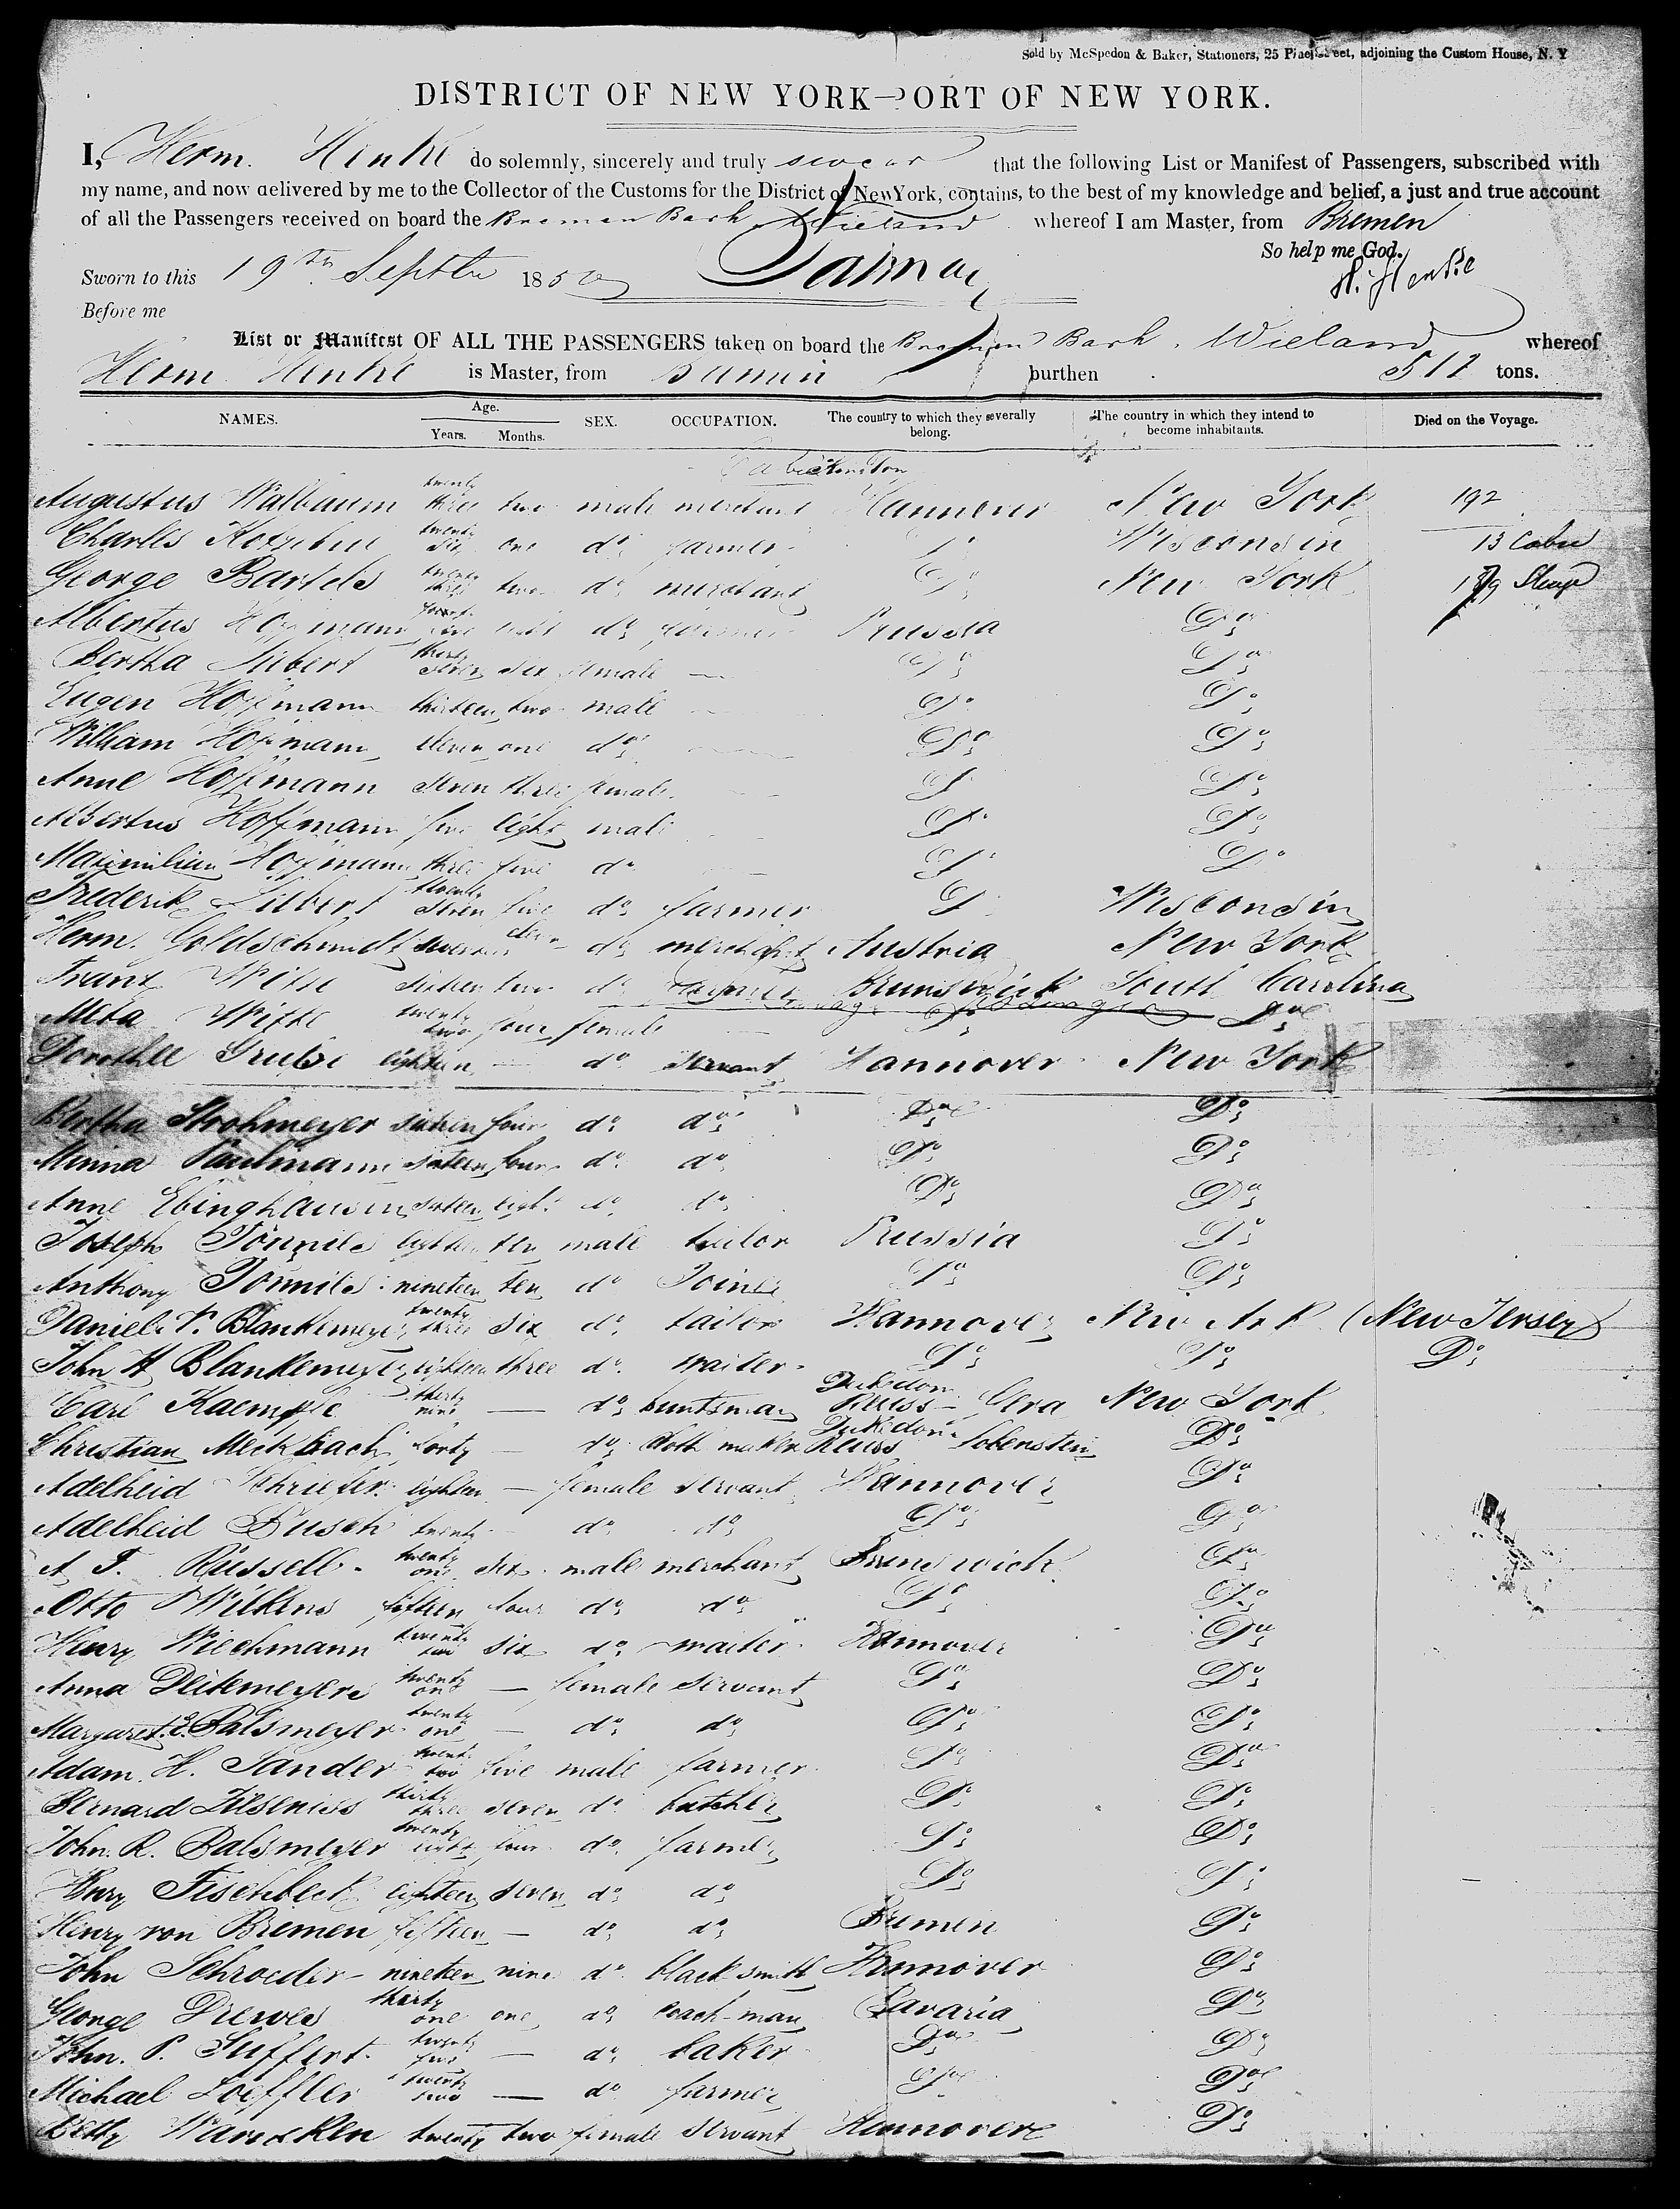 Sold by McSpedon & Baker, Stationers, 25 Pine Street, adjoining the Custom House, N. Y
DISTRICT OF NEW YORK—PORT OF NEW YORK.
I, Herm. Henke do solemnly, sincerely and truly swear that the following List or Manifest of Passengers, subscribed with
my name, and now delivered by me to the Collector of the Customs for the District of New York, contains, to the best of my knowledge and belief, a just and true account
of all the Passengers received on board the Bremen Bark Wieland whereof I am Master, from Bremen
So help me God.
Sworn to this 19th Septbr 185 H. Henke
Before me
List or Manifest OF ALL THE PASSENGERS taken on board the Bremen Bark. Wieland whereof
Herm. Henke is Master, from Bremen burthen 512 tons.
NAMES. Age. Years. Months. SEX. OCCUPATION. The country to which they severally belong. The country in which they intend to become inhabitants. Died on the Voyage.
Augustus Walbaum twenty three two male merchant Hannover New York 192
Charles Kotzebue twenty six one do farmer Do Wisconsin 13
George Bartels twenty three two do merchant Do New York
Albertus Hoffmann eight do farmer Prussia Do
Bertha Siebert thirty seven six female — Do Do
Eugen Hoffmann thirteen two male — Do Do
William Hoffmann eleven one do — Do Do
Anne Hoffmann seven three female — Do Do
Albertus Hoffmann five eight male — Do Do
Maximilian Hoffmann three five do — Do Do
Frederik Siebert twenty seven five do farmer Do Wisconsin
Herm. Goldschmidt eleven do merchant Austria New York
Franz Witte sixteen two do farmer Brunswick South Carolina
Meta Witte twenty two four female — Do Do
Dorothee Grube eighteen — do servant Hannover New York
Bertha Strohmeyer sixteen four do do Do Do
Minna Paulmann sixteen four do do Do Do
Anne Ebinghausen sixteen eight do do Do Do
Joseph Tönnies eighteen ten male tailor Prussia Do
Anthony Tönnies nineteen ten do Joiner Do Do
Daniel F. Blankemeyer twenty three six do tailor Hannover New Ark (New Jersey)
John H Blankemeyer eighteen three do waiter Do Do Do
Carl Kaempfe thirty nine — do huntsman Dukedom Reuss - Gera New York
Christian Meckbach forty — do cloth maker Dukedom Reuss Lobenstein Do
Adelheid Schriefer eighteen — female servant Hannover Do
Adelheid Busch twenty — do do Do Do
A. F. Russell twenty one six male merchant Brunswick Do
Otto Wilkens fifteen four do do Do Do
Henry Wiechmann twenty two six do waiter Hannover Do
Anna Deitemeyere twenty one — female servant Do Do
Margaret E. Balsmeyer twenty one — do do Do Do
Adam. H. Sander twenty two five male farmer Do Do
Bernard thirty three seven do butcher Do Do
John. R. Balsmeyer twenty eight four do farmer Do Do
Henry Fischbeck eighteen seven do do Do Do
Henry von Bremen fifteen — do do Bremen Do
John Schroeder nineteen nine do black smith Hannover Do
George Drewes thirty one one do coach-man Bavaria Do
John. P. Suffert twenty — do baker Do Do
Michael Loeffler twenty two — do farmer Do Do
Betty Warncken twenty two female servant Hannovere Do